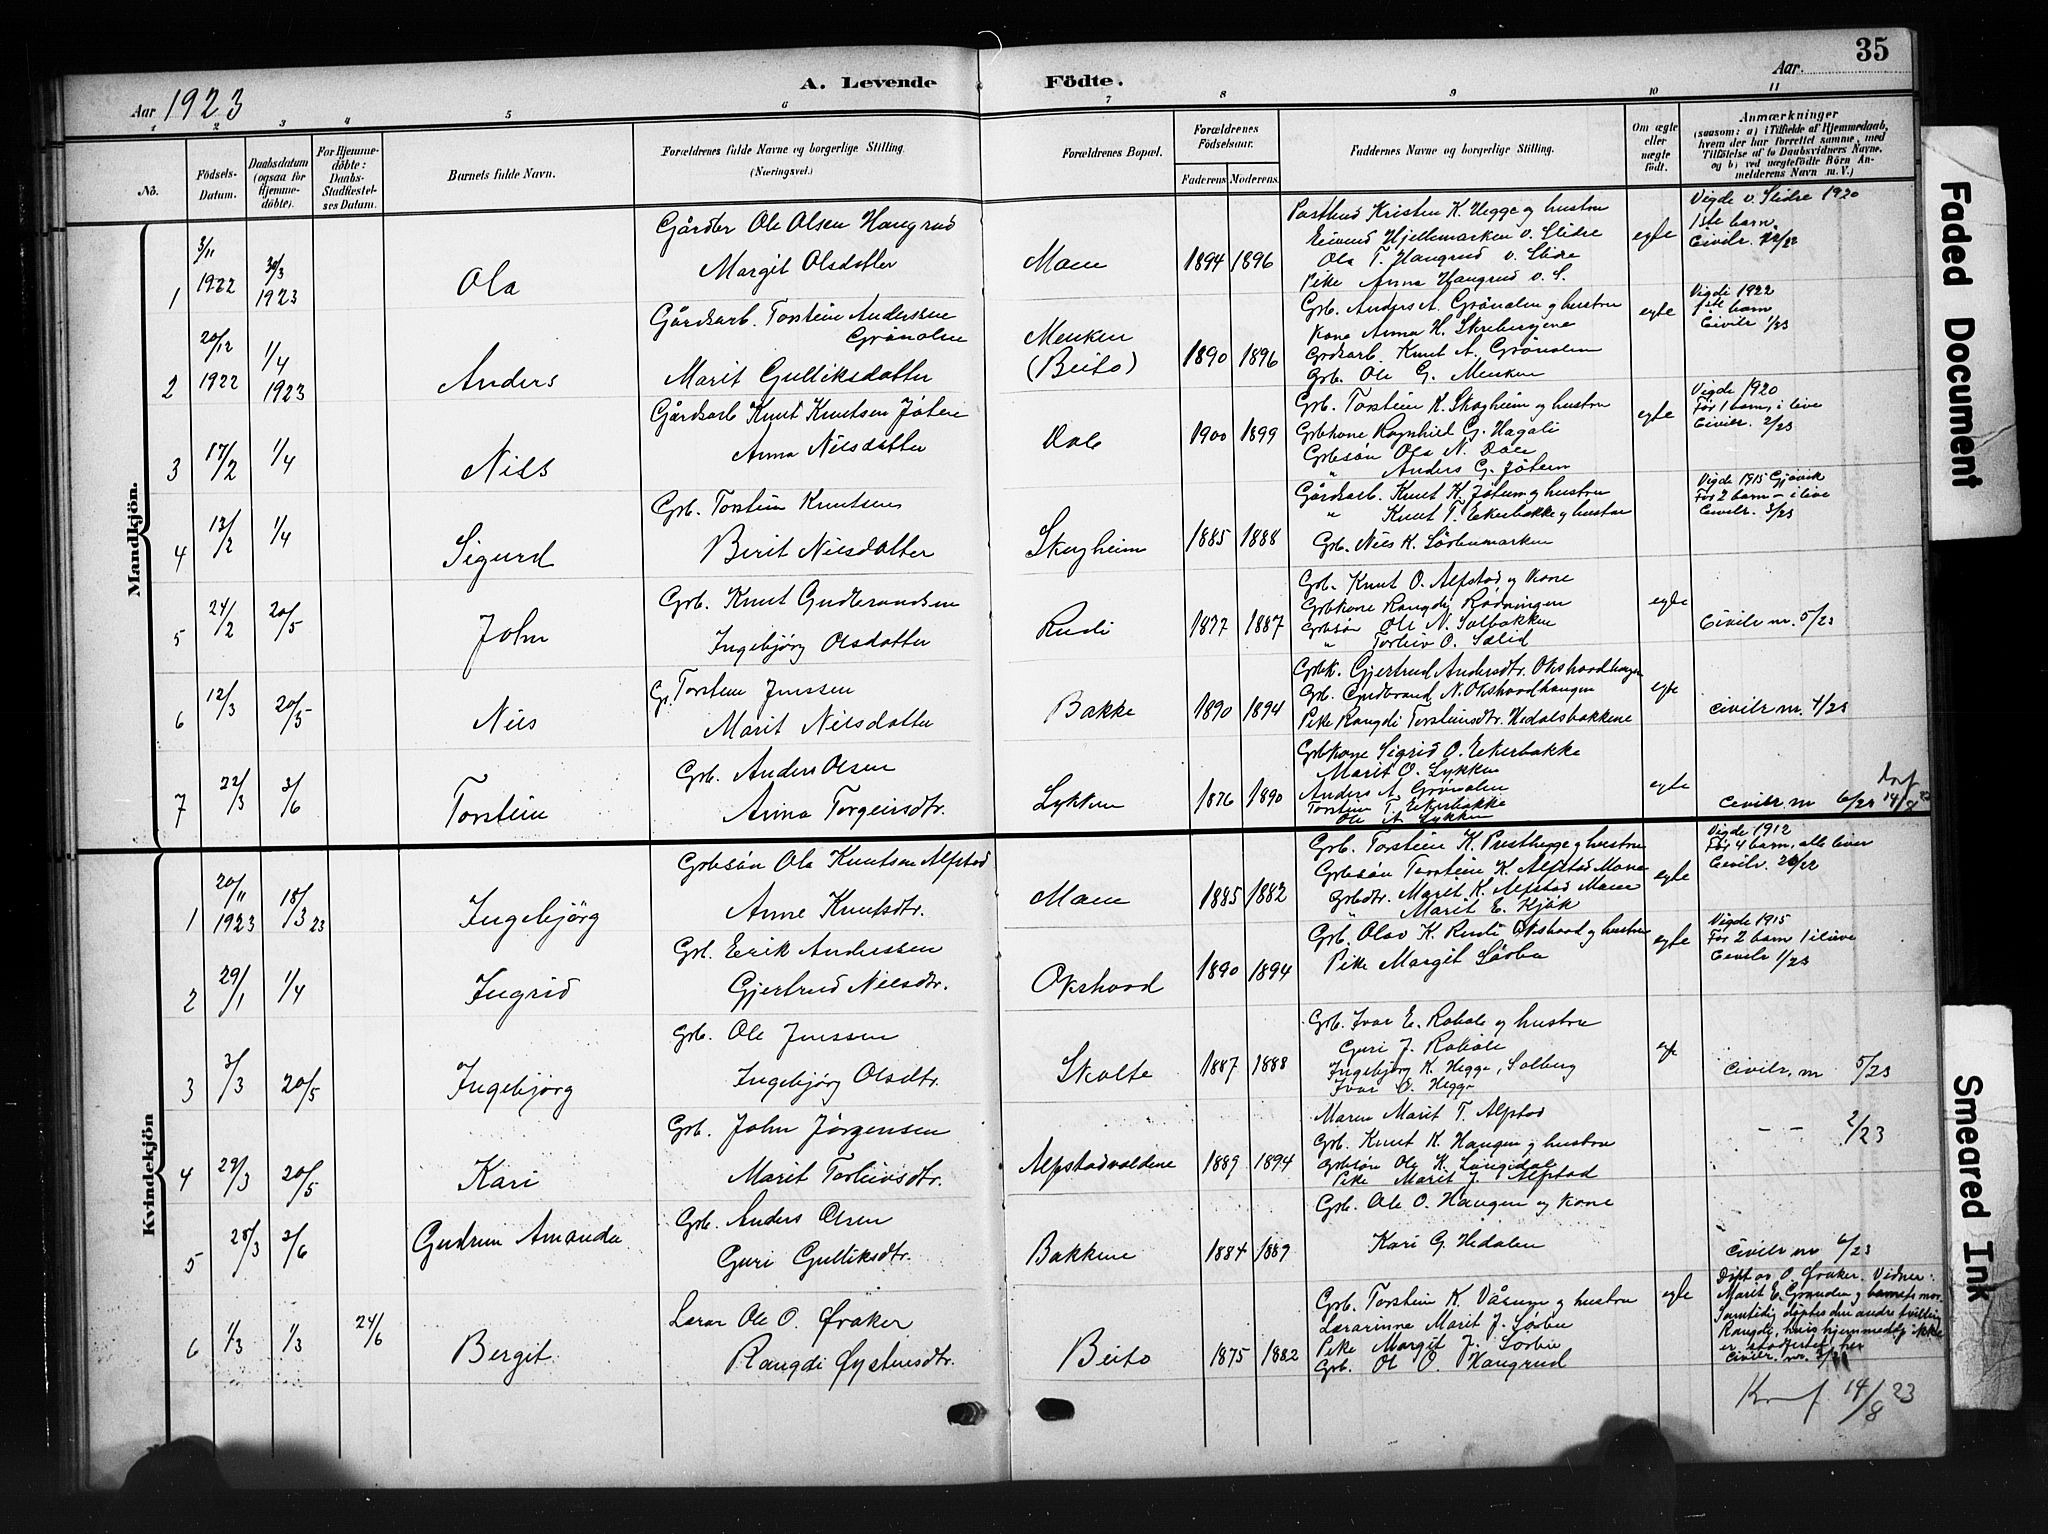 35
A. Levende Födte.
Aar 1923
Aar.
1 2 3 4 5 6 7 8 9 10 11
No.
Födsels-Datum.
Daabsdatum (ogsaa for Hjemme-döbte).
For Hjemme-döbte: Daabs-Stadfæstelses Datum.
Barnets fulde Navn.
Forældrenes fulde Navne og borgerlige Stilling. (Næringsvei.)
Forældrenes Bopæl.
Forældrenes Födselsaar.
Faderens. Moderens.
Faddernes Navne og borgerlige Stilling.
Om ægte eller uægte födt.
Anmærkninger
(saasom: a) i Tilfælde af Hjemmedaab, hvem der har forrettet samme, med Tilföielse af to Daabsvidners Navne, og b) ved uægtefödte Börn Anmelderens Navn m. V.)
Mandkjön.
1 3/11 1922 30/3 1923 Ola
Gårdbr Ole Olsen Haugrud
Margit Olsdatter
Moen 1894 1896
Postbud Kristen K. Hegge og hustru
Eivind Hjellemarken v. Slidre
Ola T. Haugrud v. Slidre
Pike Anna Haugrud v. S.
egte
Vigde v. Slidre 1920
1ste barn.
Civilr. 12/22
2 20/12 1922 1/4 1923 Anders
Gårdsarb. Torstein Anderssen Grönolen
Marit Gulliksdatter
Menken (Beito) 1890 1896
Grb. Anders A. Grönolen og hustru
Kona Anna H. Skrebergene
Grdsarb. Knut A. Grönolen
Grb. Ole G. Menken
egte
Vigde 1922
1ste barn
Civilr 1/23
3 17/2 1/4 Nils
Gårdsarb Knut Knutsen Joten
Anna Nilsdatter
Dale 1900 1899
Grb. Torstein K. Skogheim og hustru
Grbkone Ragnhild G. Hagali
Grbsön Ola N. Dale
" Anders G. Jotem
egte
Vigde 1920
Før 1 barn, i live
Civilr. 2/23
4 13/2 1/4 Sigurd
Grb. Torstein Knutsen
Berit Nilsdatter
Skogheim 1885 1888
Gårdsarb. Knut K. Jotem og hustru
" Knut T. Ekerbakke og hustru
Grb. Nils K. Sörbumarken
Vigde 1915 Gjøvik
Før 2 barn – i live
Civilr. 3/23
5 24/2 20/5 John
Grb. Knut Gudbrandsen
Ingebjörg Olsdatter
Rudi 1877 1887
Grb. Knut O. Alfstad og kone
Grbkone Rangdi Rødningen
Grbsön Ole N. Solbakken
" Torleiv O. Sælid
egte
Civilr nr. 5/23
6 12/3 20/5 Nils
Gr. Torstein Jensen
Marit Nilsdatter
Bakke 1890 1894
Grbk. Gjertrud Andersdtr. Okshovdhaugen
Grb. Gudbrand N. Okshovdhaugen
Pike Rangdi Torsteinsdtr. Hedalsbakkene
egte
Civilr nr. 4/23
7 22/3 3/6 Torstein
Grb. Anders Olsen
Anna Torgeirsdtr.
Lykken 1876 1890
Grbkone Sigrid O. Ekerbakke
Marit O. Lykken
Anders A. Grönolen
Torstein T. Ekerbakke
Ole A. Lykken
egte
Civilr nr 6/23 14/8 23
Kvindekjön
1 20/11 1923 18/3 23 Ingebjörg
Grbsön Ola Knutsen Alfstad
Anne Knutsdtr.
Moen 1885 1882
Grb. Torstein K. Presthegge og hustru
Grbsön Torstein K. Alfstad Moen
Grbdtr. Marit K. Alfstad Moen
" Marit E. Kjök
egte
Vigde 1912
Før 4 barn, alle lever
Civilr. 20/22
2 29/1 1/4 Ingrid
Grb. Erik Anderssen
Gjertrud Nilsdtr.
Okshovd 1890 1894
Grb. Olav K. Rudi Okshovd og hustru
Pike Margit Sörbu
egte
Vigde 1915
Før 2 barn 1 i live
Civilr 1/23
3 3/3 20/5 Ingebjörg
Grb. Ole Jenssen
Ingebjörg Olsdtr.
Skolte 1887 1888
Grb. Ivar E. Robole og hustru
Guri J. Robole
Ingebjörg K. Hegge, Solberg
Ivar O. Hegge
egte
Civilr, nr 5/23
4 29/3 20/5 Kari
Grb. John Jörgensen
Marit Torleivsdtr.
Alfstadvoldene 1889 1894
Maren Marit T. Alfstad
Grb. Knut K. Haugen og hustru
Grbsön Ole K. Lungidal
Pike Marit J. Alfstad
– – 2/23
5 28/3 3/6 Gudrun Amanda
Grb. Anders Olsen
Guri Gulliksdtr.
Bakkene 1884 1889
Grb. Ole O. Haugen og kone
Kari G. Hedalen
Civilr nr 6/23
6 1/3 1/3 24/6 Bergit
Lærer Ole O. Øvaker
Rangdi Øysteinsdtr.
Beito 1875 1882
Grb. Torstein K. Vårum og hustru
Lærarinne Marit J. Sörbu
Pike Margit J. Sörbu
Grb. Ol O. Haugrud
egte
Döpt av O. Øvaker. Vidner:
Marit E. Granolen og barnets mor.
Samtidig döptes den andre tvilling
Rangdi, hvis hjemmedåp ikke
er stadfestet her
Civilr. nr. 3/23
14/8 23
Faded Document
Smeared Ink